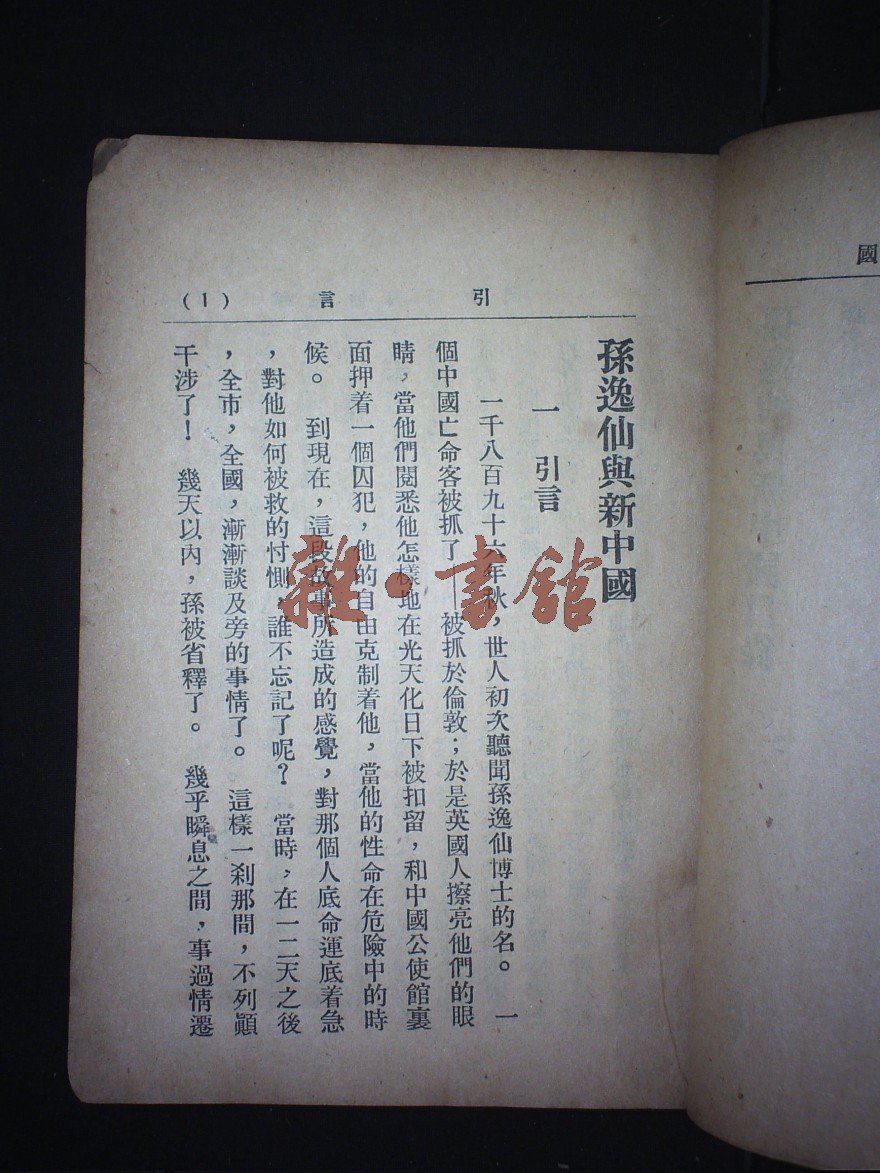 引言
(1)
孫逸仙與新中國
一 引言
一千八百九十六年秋，世人初次聽聞孫逸仙博士的名。 一
個中國亡命客被抓了——被抓於倫敦；於是英國人擦亮他們的眼
睛，當他們閱悉他怎樣地在光天化日下被扣留，和中國公使館裏
面押着一個囚犯，他的自由克制着他，當他的性命在危險中的時
候。 到現在，這段故事所造成的感覺，對那個人底命運底着急
，對他如何被救的忖惻，誰不忘記了呢？ 當時，在一二天之後
，全市，全國，漸漸談及旁的事情了。 這樣一刹那間，不列顛
干涉了！ 幾天以內，孫被省釋了。 幾乎瞬息之間，事過情遷
國
雜·書館